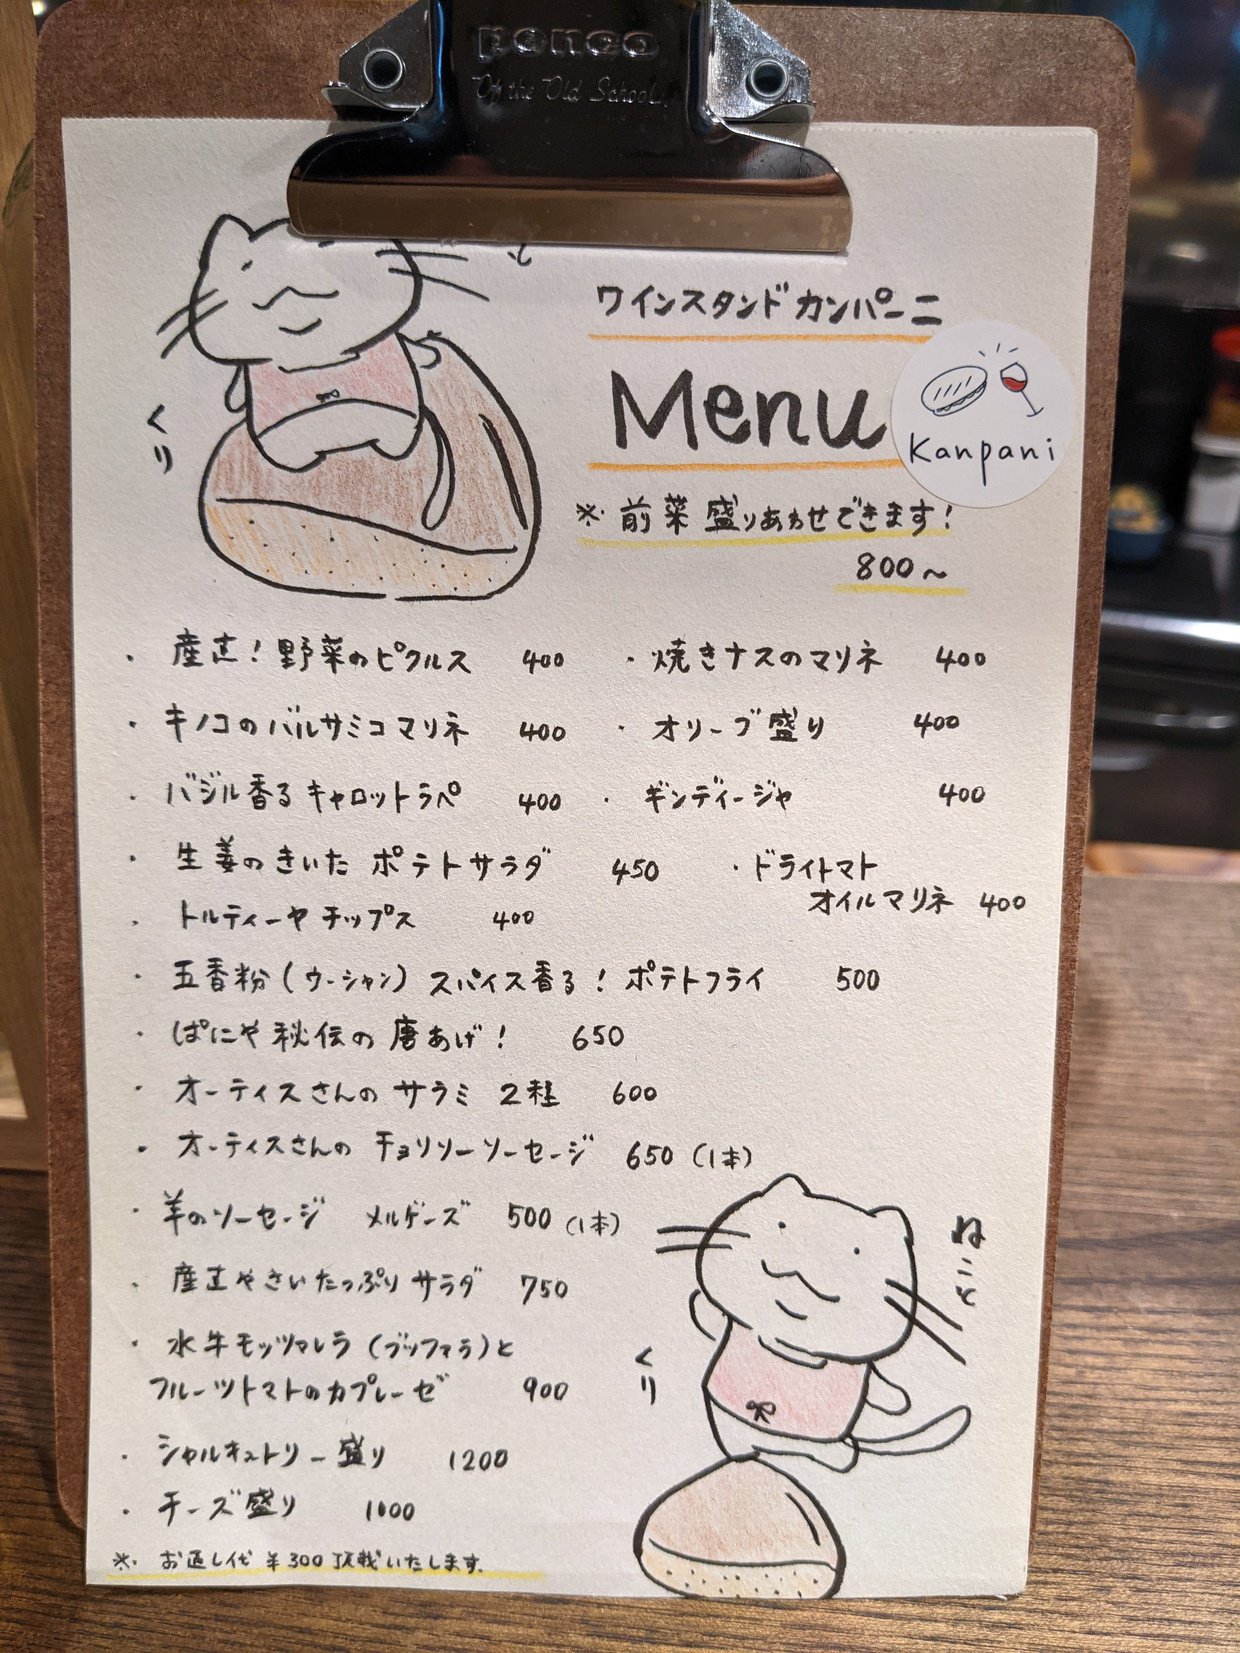 penco
Of the Old School.
と
くり
ワインスタンドカンパーニ
Menu
Kanpani
※前菜盛りあわせできます!
800〜
・産直!野菜のピクルス 400
・焼きナスのマリネ 400
・キノコのバルサミコマリネ 400
・オリーブ盛り 400
・バジル香るキャロットラペ 400
・ギンディージャ 400
・生姜のきいたポテトサラダ 450
・ドライトマト
オイルマリネ 400
・トルティーヤチップス 400
・五香粉(ウーシャン)スパイス香る!ポテトフライ 500
・ぱにや秘伝の唐あげ! 650
・オーティスさんのサラミ 2種 600
・オーティスさんの チョリソーソーセージ 650(1本)
・羊のソーセージ メルゲーズ 500(1本)
・産直やさいたっぷりサラダ 750
・水牛モッツァレラ(ブッファラ)と
フルーツトマトのカプレーゼ 900
・シャルキュトリー盛り 1200
・チーズ盛り 1000
※お通し代¥300頂戴いたします。
ねこと
くり